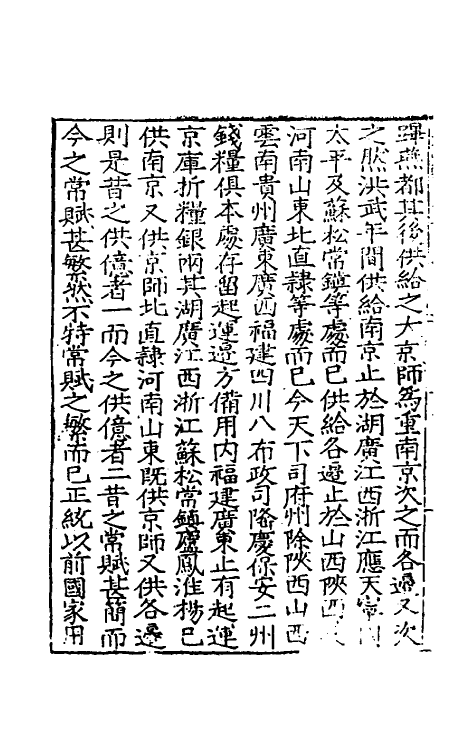 蹕燕都其後供給之大京師爲重南京次之而各邊又次
之然洪武年間供給南京止於湖廣江西浙江應天寧國
太平及蘇松常鎮等處而已供給各邊止於山西陝西
河南山東北直隷等處而已今天下司府州除陝西山西
雲南貴州廣東廣西福建四川八布政司隆慶保安二州
錢糧俱本處存留起運邊方備用内福建廣東止有起運
京庫折糧銀兩其湖廣江西浙江蘇松常鎮廬鳳淮楊已
供南京又供京師北直隷河南山東既供京師又供各邊
則是昔之供億者一而今之供億者二昔之常賦甚簡而
今之常賦甚繁然不特常賦之繁而已正統以前國家用